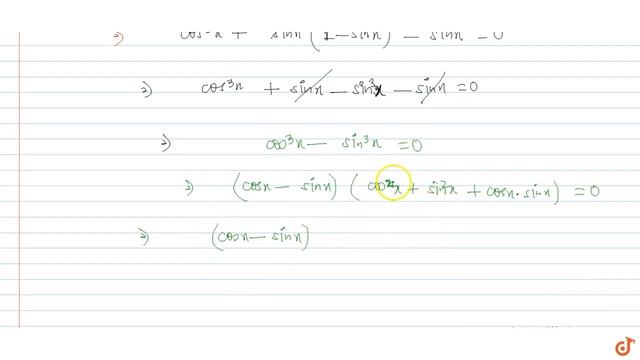 ⇒ cos³x + sinx (1 - sin²x) - sinx = 0
⇒ cos³x + sinx - sin³x - sinx = 0
⇒ cos³x - sin³x = 0
⇒ (cosx - sinx) (cos²x + sin²x + cosx·sinx) = 0
⇒ (cosx - sinx)